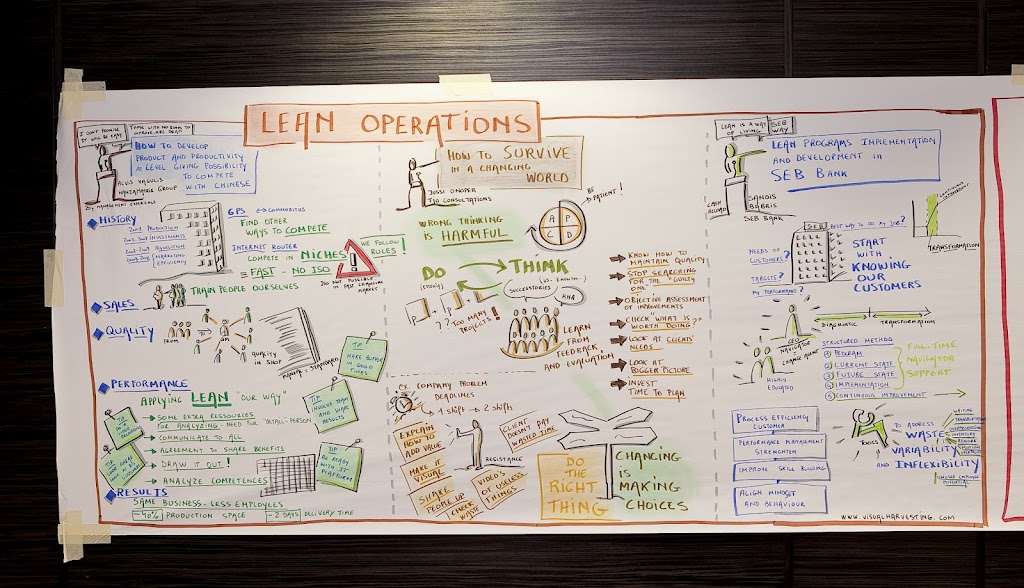 LEAN OPERATIONS
I DON'T PROMISE
IT WILL BE EASY
HOW TO DEVELOP
PRODUCT AND PRODUCTIVITY
AT LEVEL GIVING POSSIBILITY
TO COMPETE
WITH CHINESE
GROUP
MANAGEMENT EXPERIENCE
HISTORY
PRODUCTION
INVESTMENTS
MARKETING
EFFICIENCY
GPS
COMMODITIES
FIND OTHER
WAYS TO COMPETE
INTERNET ROUTER
COMPETE IN NICHES
= FAST - NO ISO
WE FOLLOW
RULES!
!
DO NOT POSSIBLE
IN FAST CHANGING
MARKET
SALES
TRAIN PEOPLE OURSELVES
QUALITY
FROM
QUALITY
IN SHOP
TIP
MAKE BUFFER
IN GOOD
TIMES
PERFORMANCE
APPLYING LEAN "OUR WAY"
SOME EXTRA RESSOURCES
FOR ANALYZING - NEED FOR DETAIL-PERSON
COMMUNICATE TO ALL
AGREEMENT TO SHARE BENEFITS
DRAW IT OUT!
ANALYZE COMPETENCES
TIP
INVOLVE TEAM
AND SHARE
RESULTS
TIP
BE READY
WITH IT
PLATFORM
RESULTS
SAME BUSINESS - LESS EMPLOYEES
-40% PRODUCTION SPACE
-2 DAYS DELIVERY TIME
HOW TO SURVIVE
IN A CHANGING
WORLD
JUSSI
CONSULTATIONS
WRONG THINKING
IS HARMFUL
A P
C D
BE
PATIENT!
DO
THINK
SUCCESSTORIES
AHA
?? TOO MANY
PROJECTS!
LEARN
FROM
FEEDBACK
AND EVALUATION
KNOW HOW TO
MAINTAIN QUALITY
STOP SEARCHING
FOR THE "GUILTY
ONE"
OBJECTIVE ASSESSMENT
OF IMPROVEMENTS
CHECK "WHAT IS
WORTH DOING"?
LOOK AT CLIENTS'
NEEDS
LOOK AT
BIGGER PICTURE
INVEST
TIME TO PLAN
EX. COMPANY PROBLEM
DEADLINES
1 shift → 2 shifts
EXPLAIN
HOW TO
ADD VALUE
MAKE IT
VISUAL
SHAKE
PEOPLE UP
CHECK
WASTE
RESISTANCE
CLIENT
DOESN'T PAY
WASTED TIME
VIDEO'S
OF USELESS
THINGS
DO
THE
RIGHT
THING
CHANGING
IS
MAKING
CHOICES
LEAN IS A WAY
OF LIVING
SEB
WAY
LEAN PROGRAMS IMPLEMENTATION
AND DEVELOPMENT IN
SEB BANK
SANDIS
BABRIS
SEB BANK
SEB
BEST WAY TO DO MY JOB?
NEEDS OF
CUSTOMERS?
TARGETS?
MY PERFORMANCE?
START
WITH
KNOWING
OUR
CUSTOMERS
TRANSFORMATION
DIAGNOSTIC
TRANSFORMATION
NAVIGATOR
CHANGE AGENT
HIGHLY
EDUCATED
STRUCTURED METHOD
1 PROGRAM
2 CURRENT STATE
3 FUTURE STATE
4 IMPLEMENTATION
5 CONTINUOUS IMPROVEMENT
FULL-TIME
NAVIGATOR
SUPPORT
PROCESS EFFICIENCY
CUSTOMER
PERFORMANCE MANAGEMENT
STRENGHTEN
IMPROVE SKILL BUILDING
ALIGN MINDSET
AND BEHAVIOUR
TOOLS
TO ADDRESS
WASTE
VARIABILITY
AND INFLEXIBILITY
WAITING
UNUSED EMPLOYEE
POTENTIAL
WWW.VISUALHARVESTING.COM